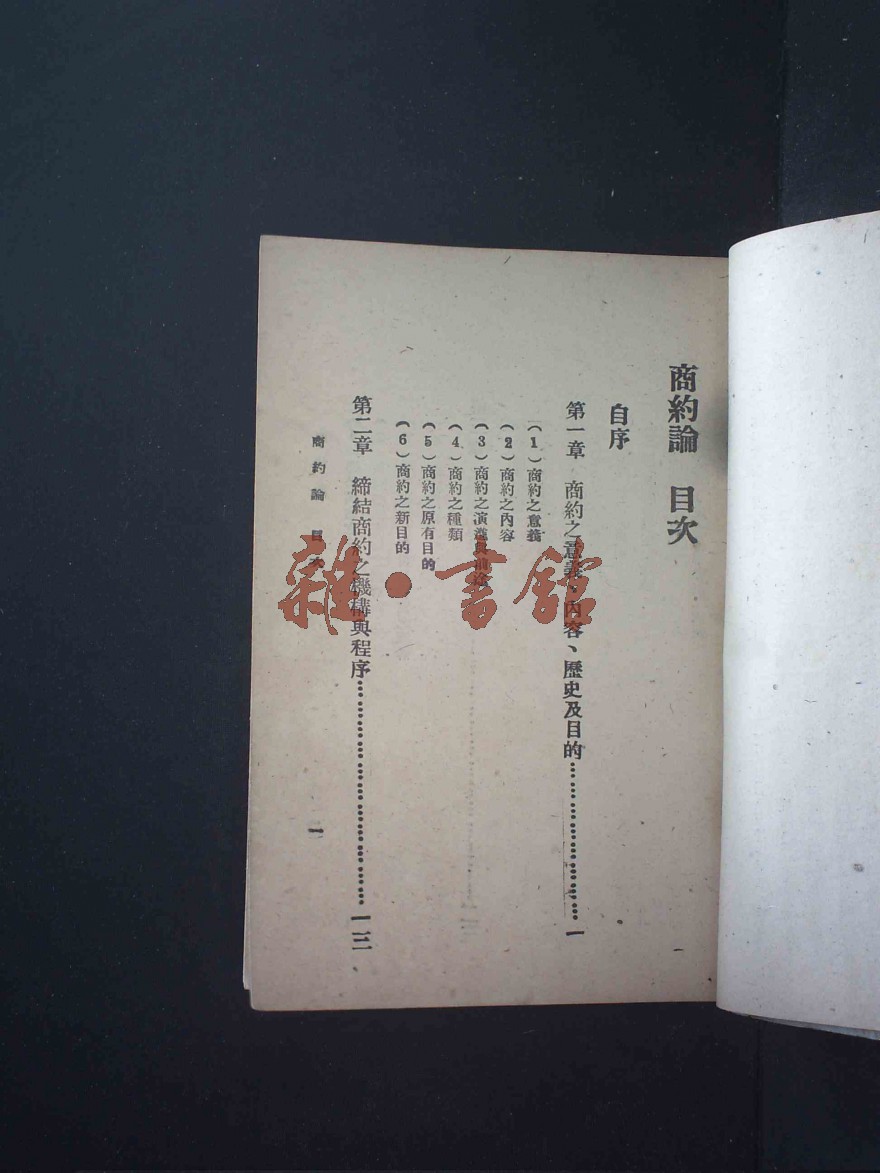 商約論　目次
自序
第一章　商約之意義、內容、歷史及目的…………………一
（1）商約之意義
（2）商約之內容
（3）商約之演進與前途
（4）商約之種類
（5）商約之原有目的
（6）商約之新目的
第二章　締結商約之機構與程序…………………一三
商約論　目次
一
雜·書館